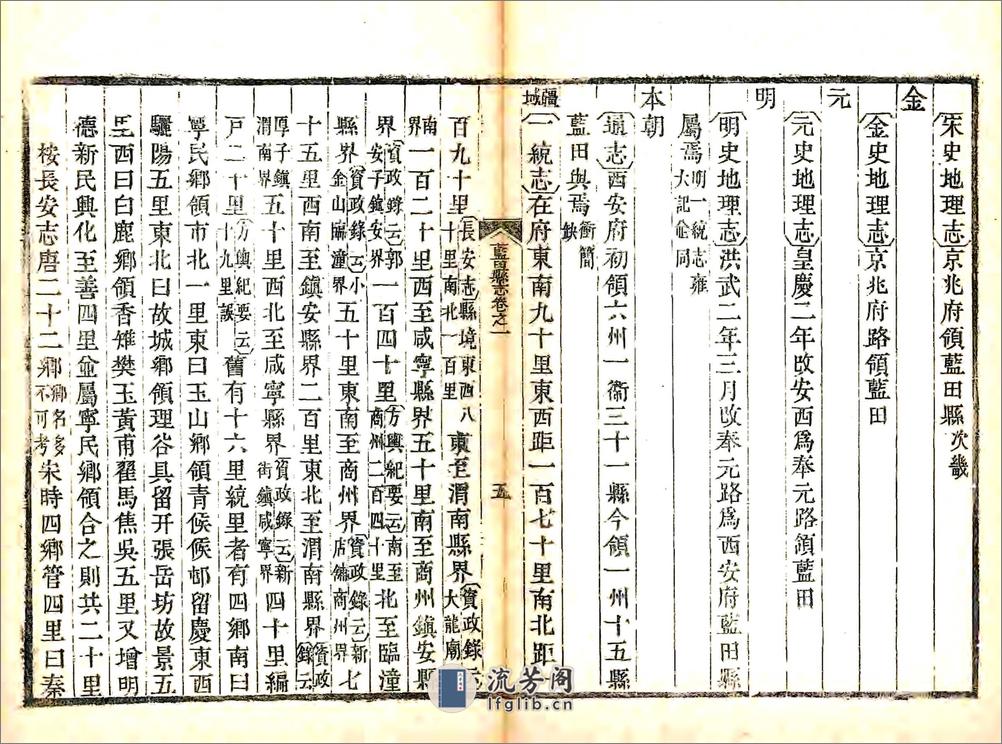 宋史地理志京兆府領藍田縣次畿
金
金史地理志京兆府路領藍田
元
元史地理志皇慶二年改安西爲奉元路領藍田
明
明史地理志洪武二年三月改奉元路爲西安府藍田縣
屬焉明一統志雍大記並同
本朝
通志西安府初領六州一衞三十一縣今領一州十五縣
藍田與焉衝簡缺
疆域
一統志在府東南九十里東西距一百七十里南北距一
百九十里長安志縣境東西八十里南北一百里東至渭南縣界資政錄云大龍廟
南界一百二十里西至咸寧縣界五十里南至商州鎮安縣
界資政錄云郭安子鎮安界一百四十里方輿紀要云南至商州二百四十里北至臨潼
縣界資政錄云小金山臨潼界五十里東南至商州界資政錄云新店鋪商州界七
十五里西南至鎮安縣界二百里東北至渭南縣界資政錄云
厚子鎮渭南界五十里西北至咸寧縣界資政錄云新街鎮咸寧界四十里編
戸二十里方輿紀要云十九里誤舊有十六里統里者有四鄉南曰
寧民鄉領市北一里東曰玉山鄉領青候候邨留慶東西
驪陽五里東北曰故城鄉領理谷具留开張岳坊故景五
里西曰白鹿鄉領香雉樊玉黃甫翟馬焦吳五里又增明
德新民興化至善四里並屬寧民鄉領合之則共二十里
桉長安志唐二十二鄉鄉名多不可考宋時四鄉管四里曰秦
藍田縣志卷之一
五
流芳阁
lfglib.cn